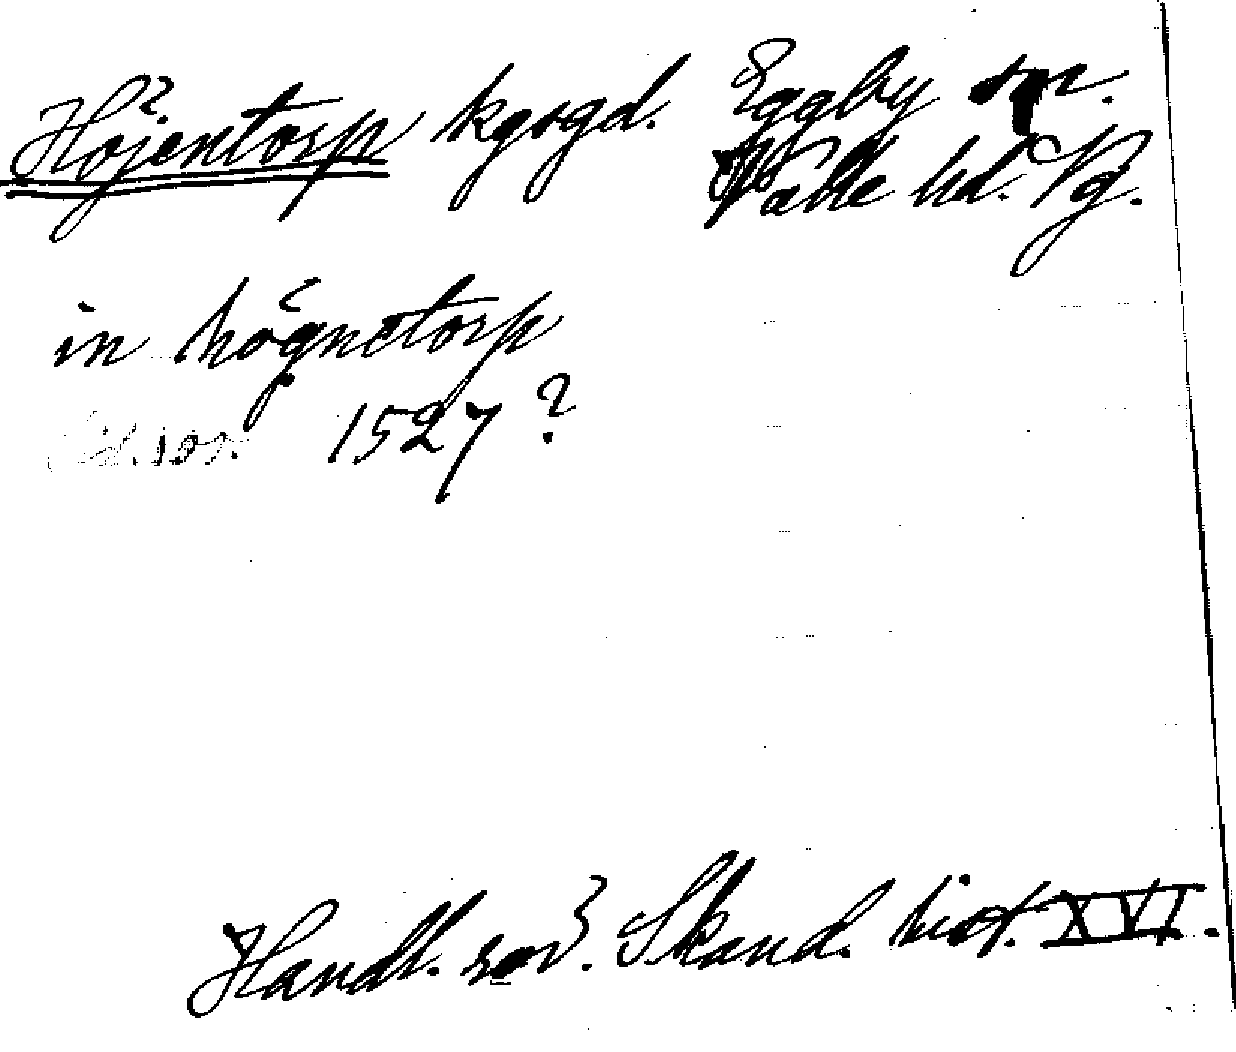 Höjentorp kgsgd. Eggby sn.
Valle hd. Vg.
in högnetorp
1527?
Handl. rör. Skand. hist. XVI.